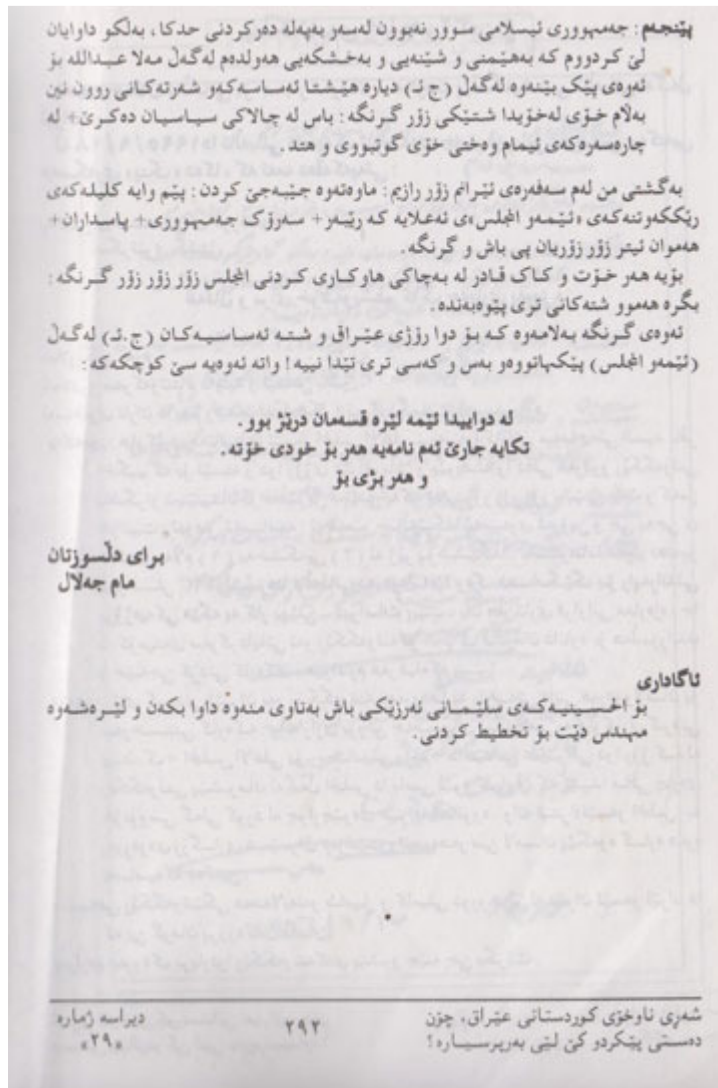 پێنجەم : جەمهووری ئیسلامی سوور نەبوون لەسەر بەپەلە دەرکردنی حدکا ، بەلکو داوایان
لێ کردووم کە بەهێمنی و شێنەیی و بەخشکەیی هەولدەم لەگەڵ مەلا عبدالله بۆ
ئەوەی پێک بێنەوە لەگەڵ (ج ئـ) دیارە هێشتا ئەساسەکەو شەرتەکانی روون نین
بەڵام خۆی لەخۆیدا شتێکی زۆر گرنگە : باس لە چالاکی سیاسیان دەکرێ + لە
چارەسەرەکەی ئیمام وەختی خۆی گوتبووی و هتد .
بەگشتی من لەم سەفەرەی ئێرانم زۆر رازیم : ماوەتەوە جێبەجێ کردن : پێم وایە کلیلەکەی
رێککەوتنەکەی «ئێمەو المجلس»ی ئەعلایە کە رێبەر + سەرۆک جەمهووری + پاسداران +
هەموان ئیتر زۆر زۆریان پی باش و گرنگە .
بۆیە هەر خۆت و کاک قادر لە بەچاکی هاوکاری کردنی المجلس زۆر زۆر زۆر گرنگە :
بگرە هەموو شتەکانی تری پێوەبەندە .
ئەوەی گرنگە بەلامەوە کە بۆ دوا رۆژی عێراق و شتە ئەساسیەکان (ج.ئـ) لەگەڵ
(ئێمەو المجلس) پێکهاتووەو بەس و کەسی تری تێدا نییە ! واتە ئەوەیە سێ کوچکەکە :
لە دواییدا ئێمە لێرە قسەمان درێژ بوو .
تکایە جارێ ئەم نامەیە هەر بۆ خودی خۆتە .
و هەر بژی بۆ
برای دڵسوزتان
مام جەلال
ئاگاداری
بۆ الحسینیەکەی سلێمانی ئەرزێکی باش بەناوی منەوە داوا بکەن و لێرەشەوە
مهندس دێت بۆ تخطیط کردنی .
شەڕی ناوخۆی کوردستانی عێراق، چۆن
دەستی پێکردو کێ لێی بەرپرسیارە ؟
٢٩٢
دیراسە ژمارە
«٢٩»